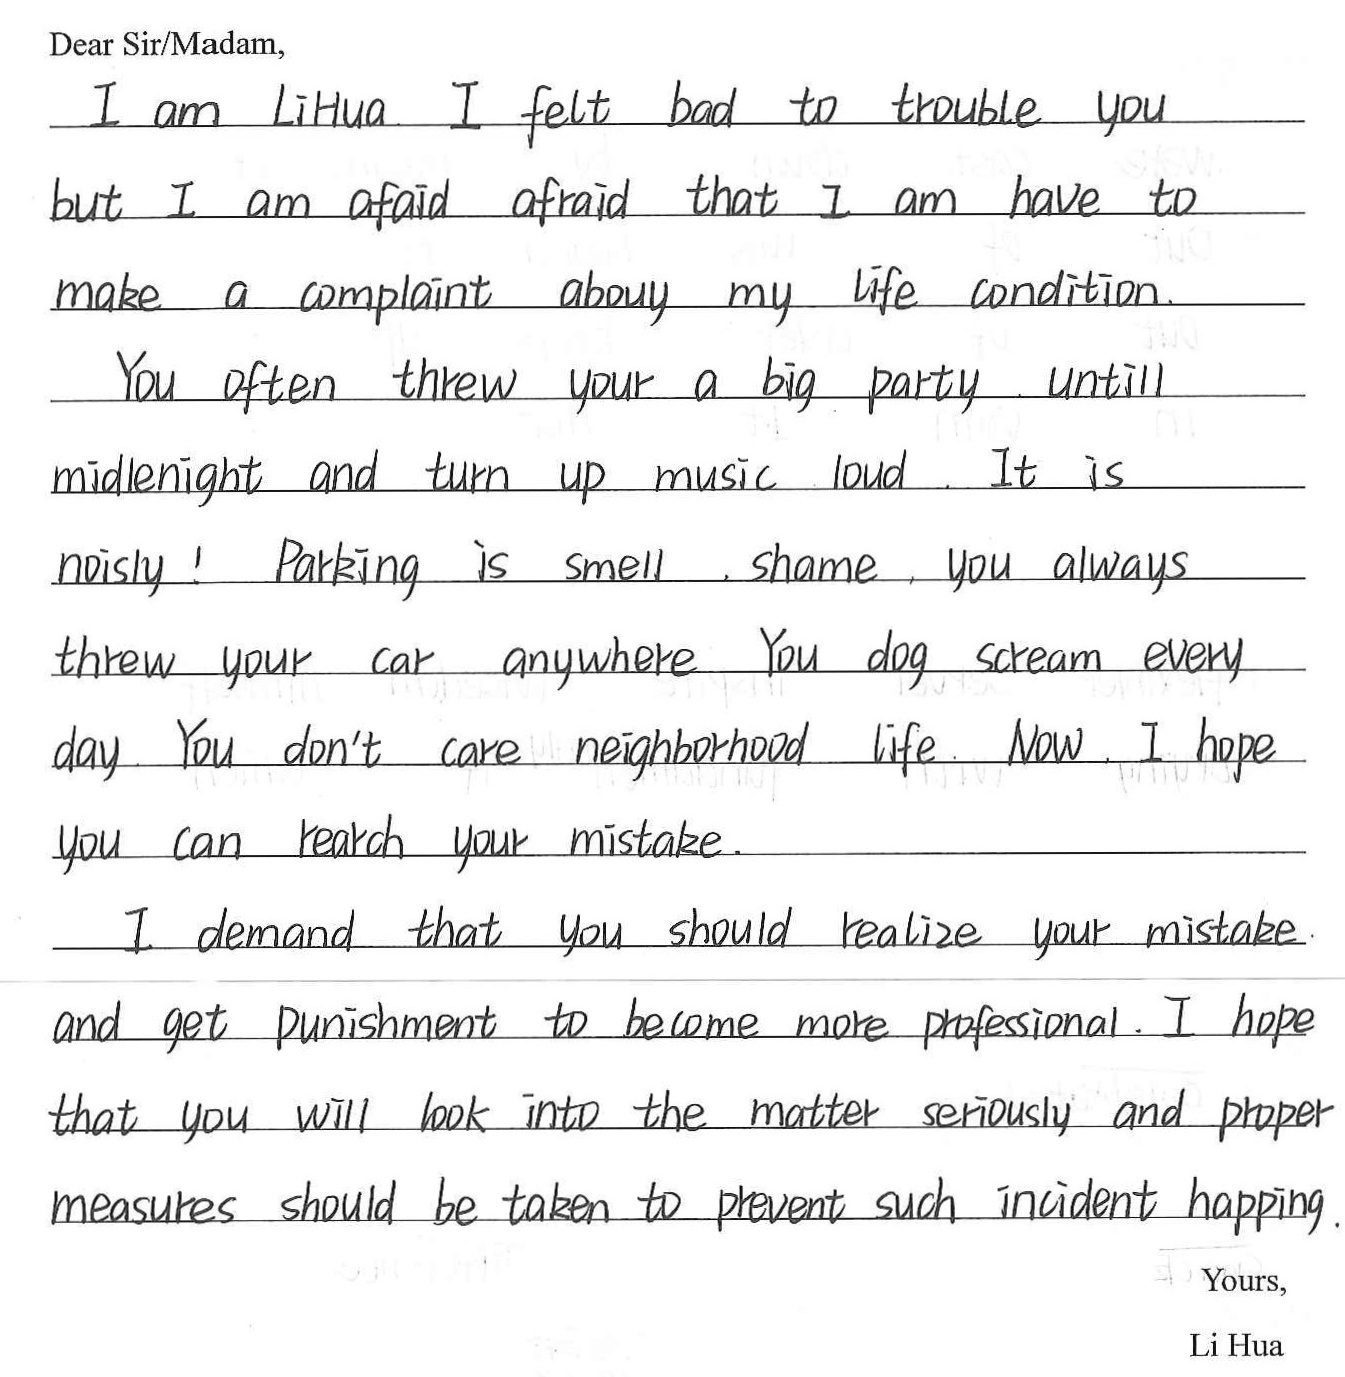 Dear Sir/Madam,
I am LiHua. I felt bad to trouble you
but I am afaid afraid that I am have to
make a complaint abouy my life condition.
You often threw your a big party untill
midlenight and turn up music loud. It is
noisly! Parking is smell. shame, you always
threw your car anywhere. You dog scream every
day. You don't care neighborhood life. Now, I hope
you can rearch your mistake.
I demand that you should realize your mistake.
and get punishment to become more professional. I hope
that you will look into the matter seriously and proper
measures should be taken to prevent such incident happing.
Yours,
Li Hua